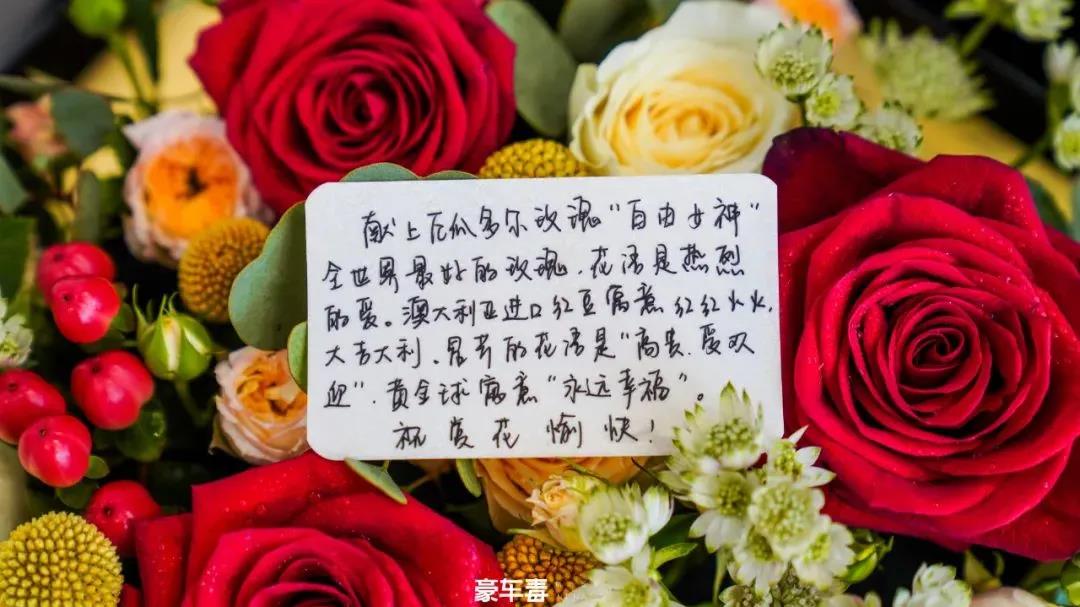 献上厄瓜多尔玫瑰“自由女神”
全世界最好的玫瑰,花语是热烈
的爱。澳大利亚进口红豆寓意红红火火,
大吉大利,星芹的花语是“高贵、受欢
迎”,黄金球寓意“永远幸福”。
祝赏花愉快!
豪车毒